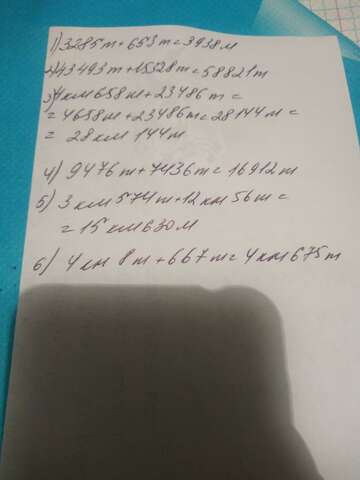 1) 3285m + 653m = 3938м
2) 43493m + 15328m = 58821m
3) 4км 658м + 23486m =
= 4658м + 23486m = 28144м =
= 28км 144м
4) 9476m + 7436m = 16912m
5) 3км 574m + 12км 56m =
= 15км 630м
6) 4км 8m + 667m = 4км 675m